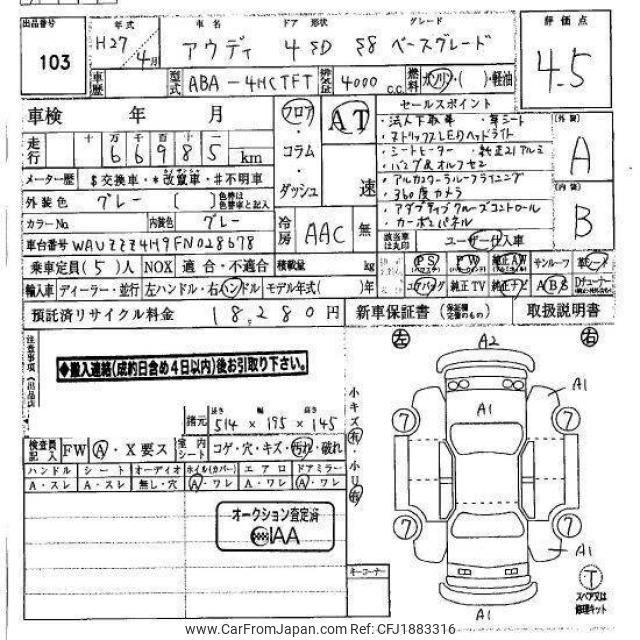 出品番号 年式 車名 ドア 形状 グレード 評価点
103 H27/4月 アウディ 4 SD S8 ベースグレード 4.5
車歴 型式 ABA-4HCTFT 排気量 4000 c.c. 燃料 ガソリン・( )・軽油
車検 年 月 フロア・コラム・ダッシュ AT セールスポイント
・法人下取車 ・革シート
・マトリックスLEDヘッドライト
走行 十 万 千 百 十 一
6 6 9 8 5 km
・シートヒーター ・純正21アルミ
外装 A
メーター歴 $交換車・*改竄車・#不明車
・アルカンターラルーフライニング
・360度カメラ
外装色 グレー ( ) 色替は色替車と記入 速
・アダプティブクルーズコントロール
内装 B
カラーNo. 内装色 グレー 冷房 AAC 無
・カーボンパネル
車台番号 WAUZZZ4H9FN028678 該当車は丸印 ユーザー仕入車
乗車定員(5)人 NOX 適合・不適合 積載量 kg PS PW 純正AW サンルーフ 革シート
輸入車 ディーラー・並行 左ハンドル・右ハンドル モデル年式( )年 エアバッグ 純正TV 純正ナビ ABS Dチューナー
預託済リサイクル料金 18,280円 新車保証書 (保証欄記載のもの) 取扱説明書
注意事項(出品店)
◆搬入連絡(成約日含め4日以内)後お引取り下さい。
左 A2 右
A1
A1
諸元 長さ 幅 高さ
514 × 195 × 145
小キズ有・小U有
7 7
検査員記入 FW A・X要ス 室内シート コゲ・穴・キズ・汚れ・破れ
ハンドル シート オーディオ ホイル(カバー) エアロ ドアミラー
A・スレ A・スレ 無し・穴 A・ワレ A・ワレ A・ワレ
オークション査定済
IAA
7 7
A1
キーコーナー
T
スペア又は修理キット
A1
www.CarFromJapan.com Ref: CFJ1883316